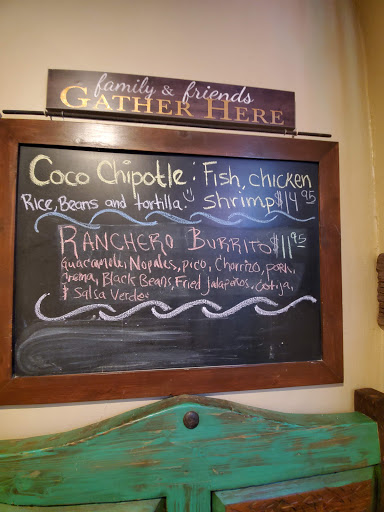 family & friends
GATHER HERE
Coco Chipotle: Fish, chicken
Rice, Beans and tortilla. Shrimp $14.95
RANCHERO BURRITO $11.95
guacamole, Nopales, pico, Chorizo,
Black Beans, Fried jalapeños, cotija,
& Salsa Verde